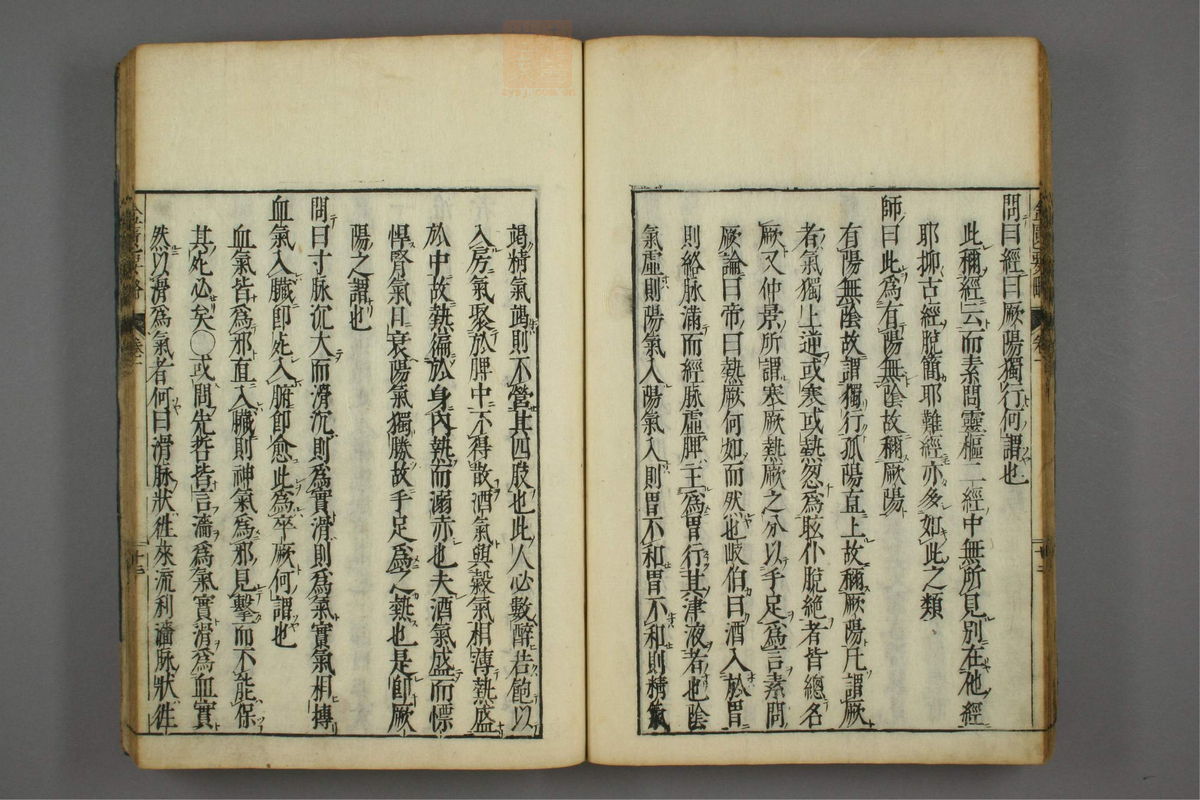 問曰經曰厥陽獨行何謂也
此稱經云而素問靈樞二經中無所見別在他經
耶抑古經脫簡耶難經亦多如此之類
師曰此爲有陽無陰故稱厥陽
有陽無陰故謂獨行孤陽直上故稱厥陽凡謂厥
者氣獨上逆或寒或熱忽爲眩仆脫絕者皆總名
厥又仲景所謂寒厥熱厥之分以手足爲言素問
厥論曰帝曰熱厥何如而然也岐伯曰酒入於胃
則絡脉滿而經脉虛脾主爲胃行其津液者也陰
氣虛則陽氣入陽氣入則胃不和胃不和則精氣
竭精氣竭則不營其四肢也此人必數醉若飽以
入房氣聚於脾中不得散酒氣與穀氣相薄熱盛
於中故熱徧於身內熱而溺赤也夫酒氣盛而慓
悍腎氣日衰陽氣獨勝故手足爲之熱也是卽厥
陽之謂也
問曰寸脉沉大而滑沉則爲實滑則爲氣實氣相搏
血氣入臟卽死入腑卽愈此爲卒厥何謂也
血氣皆爲邪直入臟則神氣爲邪見擊而不能保
其死必矣○或問先哲皆言濇爲氣實滑爲血實
然以滑爲氣者何曰滑脉狀徃來流利濇脉狀徃